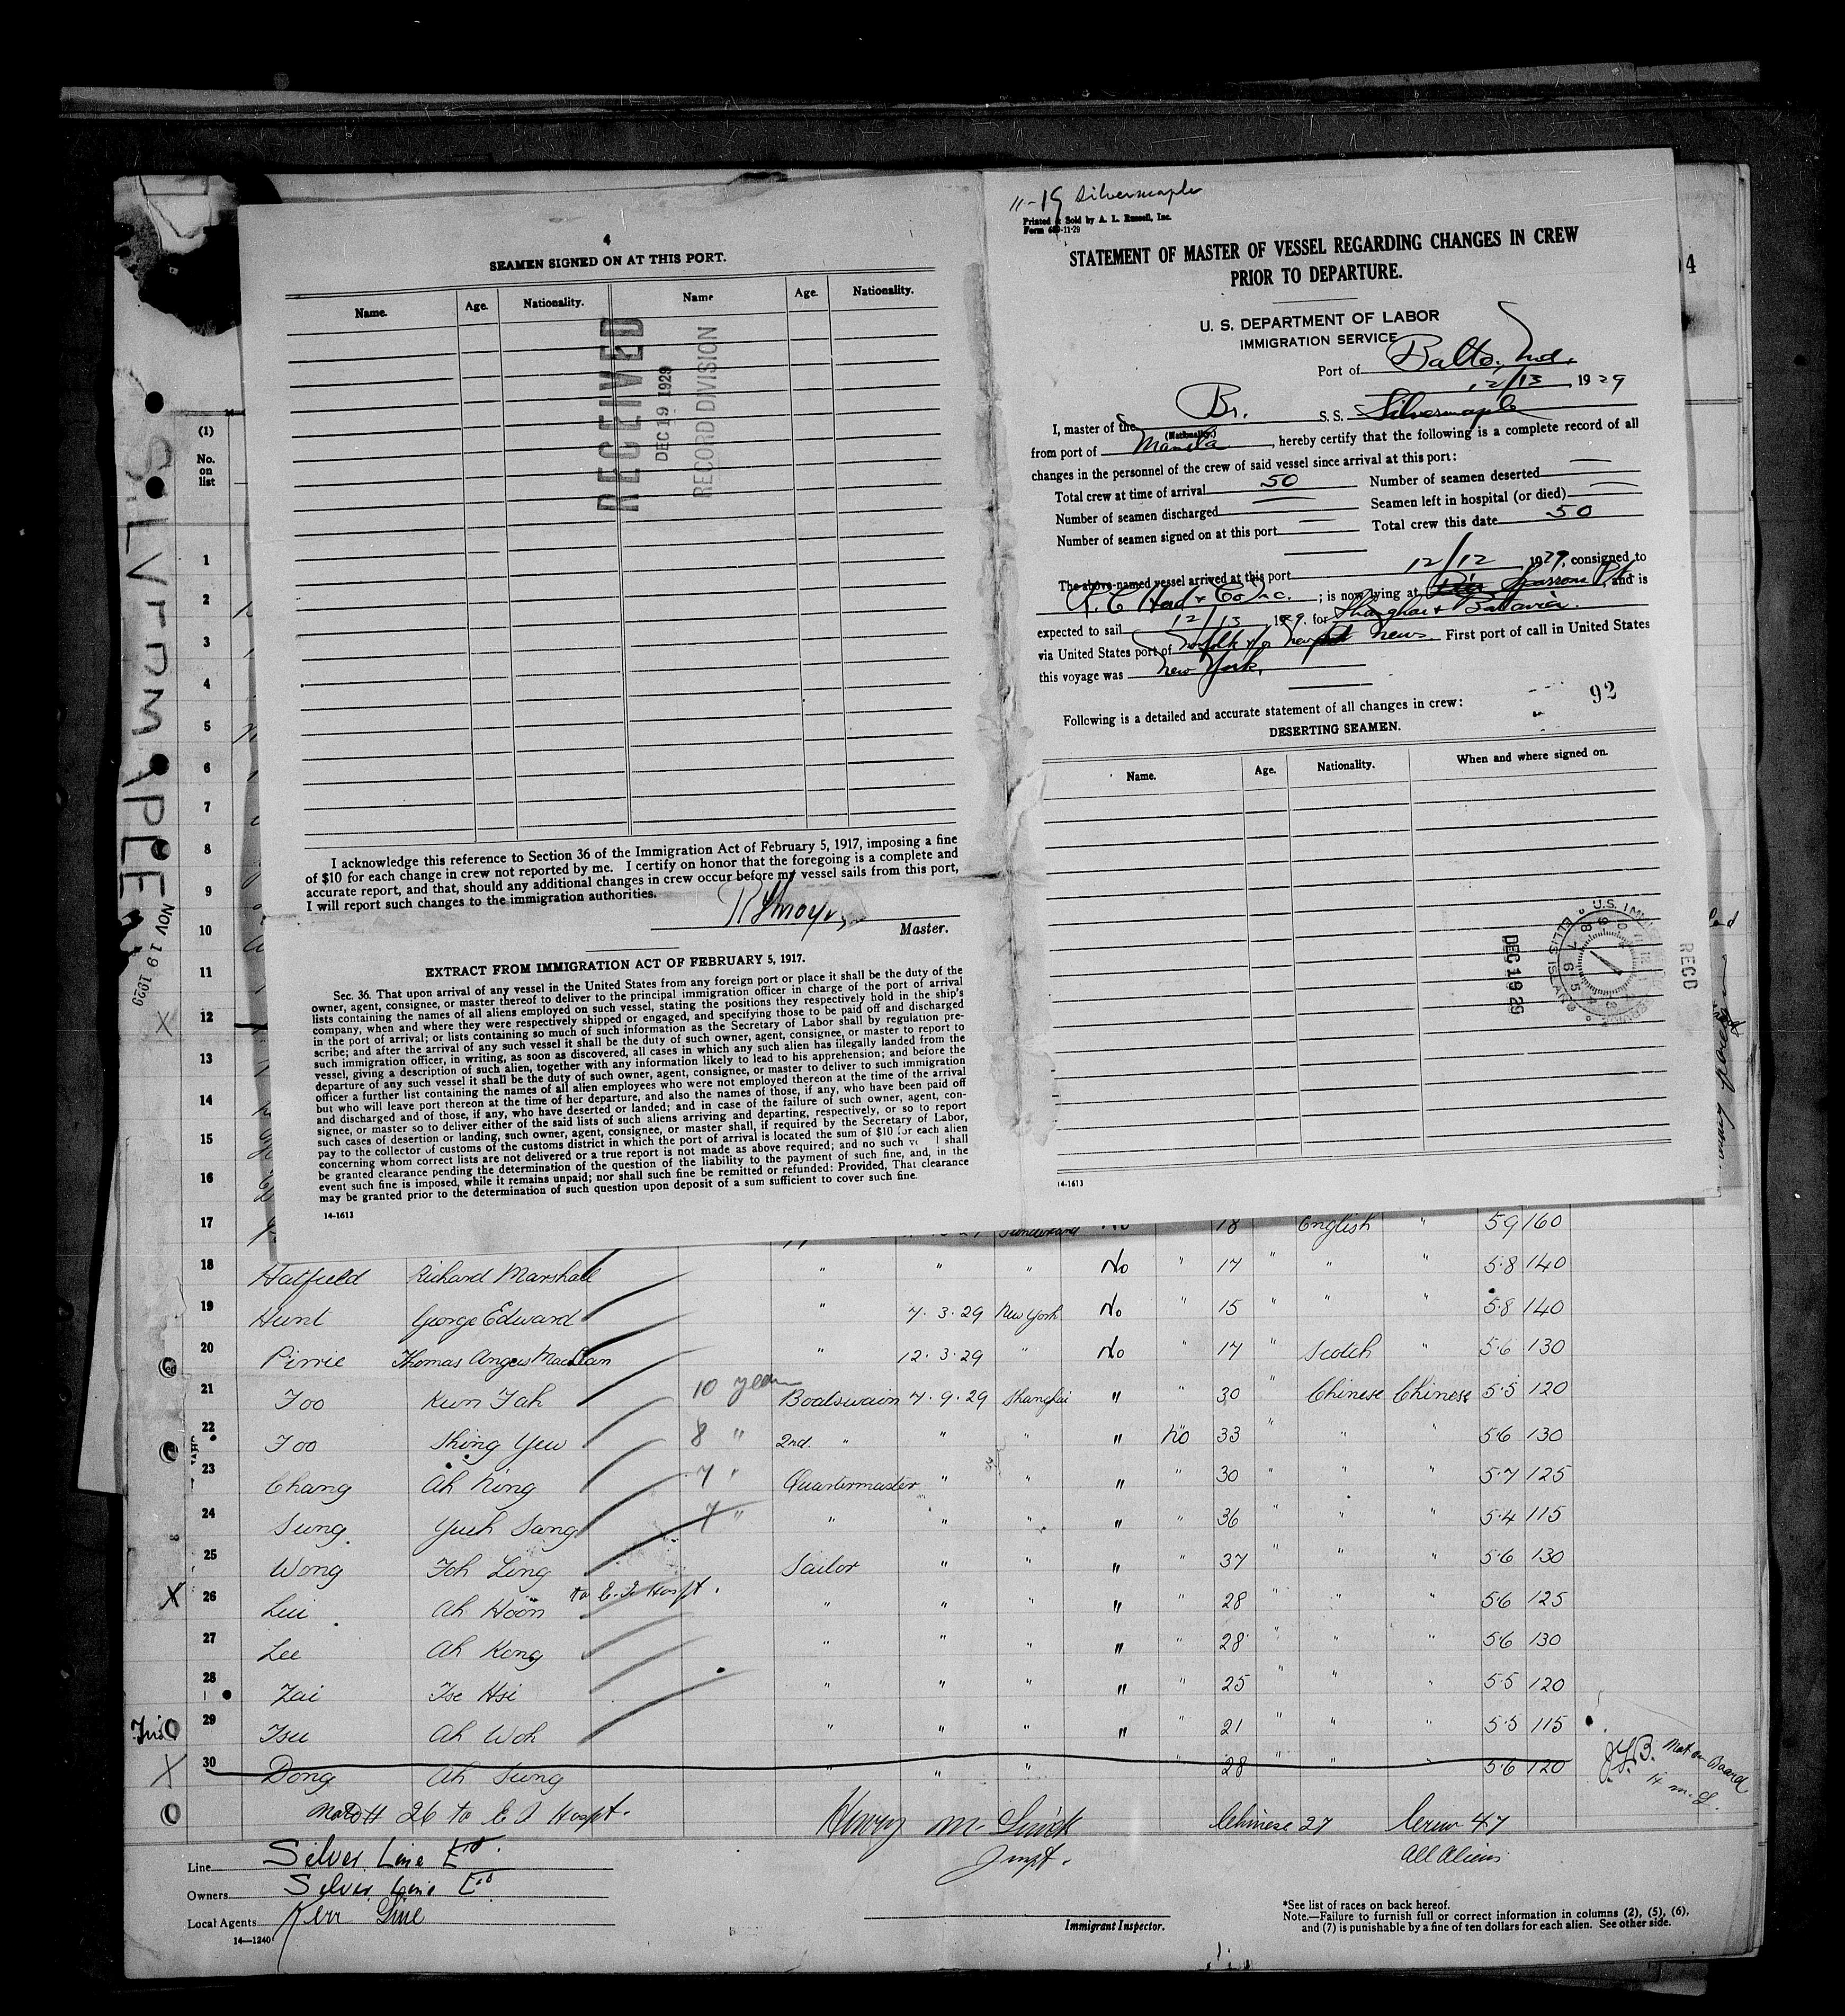 4
SEAMEN SIGNED ON AT THIS PORT.
Name. Age. Nationality. Name Age. Nationality.
RECEIVED
DEC 19 1929
RECORD DIVISION
I acknowledge this reference to Section 36 of the Immigration Act of February 5, 1917, imposing a fine
of $10 for each change in crew not reported by me. I certify on honor that the foregoing is a complete and
accurate report, and that, should any additional changes in crew occur before my vessel sails from this port,
I will report such changes to the immigration authorities.
Master.
EXTRACT FROM IMMIGRATION ACT OF FEBRUARY 5, 1917.
Sec. 36. That upon arrival of any vessel in the United States from any foreign port or place it shall be the duty of the
owner, agent, consignee, or master thereof to deliver to the principal immigration officer in charge of the port of arrival
lists containing the names of all aliens employed on such vessel, stating the positions they respectively hold in the ship's
company, when and where they were respectively shipped or engaged, and specifying those to be paid off and discharged
in the port of arrival; or lists containing so much of such information as the Secretary of Labor shall by regulation pre-
scribe; and after the arrival of any such vessel it shall be the duty of such owner, agent, consignee, or master to report to
such immigration officer, in writing, as soon as discovered, all cases in which any such alien has illegally landed from the
vessel, giving a description of such alien, together with any information likely to lead to his apprehension; and before the
departure of any such vessel it shall be the duty of such owner, agent, consignee, or master to deliver to such immigration
officer a further list containing the names of all alien employees who were not employed thereon at the time of the arrival
but who will leave port thereon at the time of her departure, and also the names of those, if any, who have been paid off
and discharged and of those, if any, who have deserted or landed; and in case of the failure of such owner, agent, con-
signee, or master so to deliver either of the said lists of such aliens arriving and departing, respectively, or so to report
such cases of desertion or landing, such owner, agent, consignee, or master shall, if required by the Secretary of Labor,
pay to the collector of customs of the customs district in which the port of arrival is located the sum of $10 for each alien
concerning whom correct lists are not delivered or a true report is not made as above required; and no such ve l shall
be granted clearance pending the determination of the question of the liability to the payment of such fine, and, in the
event such fine is imposed, while it remains unpaid; nor shall such fine be remitted or refunded: Provided, That clearance
may be granted prior to the determination of such question upon deposit of a sum sufficient to cover such fine.
14-1613
11-19 Silvermaple
Printed & Sold by A. L. Russell, Inc.
Form 689-11-29
STATEMENT OF MASTER OF VESSEL REGARDING CHANGES IN CREW
PRIOR TO DEPARTURE.
U. S. DEPARTMENT OF LABOR
IMMIGRATION SERVICE
Port of Balto, Md.
12/13, 1929
I, master of the Br. S. S. Silvermaple
(Nationality)
from port of Manila, hereby certify that the following is a complete record of all
changes in the personnel of the crew of said vessel since arrival at this port:
Total crew at time of arrival 50 Number of seamen deserted —
Number of seamen discharged — Seamen left in hospital (or died) —
Number of seamen signed on at this port — Total crew this date 50
The above-named vessel arrived at this port 12/12, 1929, consigned to
Co Inc. ; is now lying at Pier Sparrows Pt, and is
expected to sail 12/13, 1929, for Shanghai & Batavia.
via United States port of Norfolk Newport News First port of call in United States
this voyage was New York.
92
Following is a detailed and accurate statement of all changes in crew:
DESERTING SEAMEN.
Name. Age. Nationality. When and where signed on.
U.S. IMM
ELLIS ISLAND
DEC 19 29
RECD
14-1613
4
SILVERMAPLE
NOV 19 1929
(1)
No.
on
list
1
2
3
4
5
6
7
8
9
10
11
12
X
13
14
15
16
17 Sunderland No 18 English " 5 9 160
18 Hatfield Richard Marshall " " " No " 17 " " " 5·8 140
19 Hunt George Edward " 7·3·29 New York No " 15 " " " 5·8 140
20 Pirrie Thomas Angus MacLean " 12·3·29 " No " 17 " Scotch " 5·6 130
21 Foo Kun Fah 10 years Boatswain 7·9·29 Shanghai " " 30 " Chinese Chinese 5·5 120
22 Foo Shing Yew 8 " 2nd. " " " " No 33 " " " 5·6 130
23 Chang Ah Ning 7 " Quartermaster " " " " 30 " " " 5·7 125
24 Sung Yueh Sang 7 " " " " " " 36 " " " 5·4 115
25 Wong Foh Ling Sailor " " " " 37 " " " 5·6 130
X 26 Lui Ah Hoon to E. I. Hospt. " " " " " 28 " " " 5·6 125
27 Lee Ah Kong " " " " " 28 " " " 5·6 130
28 Zai Tse Hsi " " " " " 25 " " " 5·5 120
29 Tsu Ah Woh " " " " " 21 " " " 5·5 115
X 30 Dong Ah Sung " " " " 28 " " " 5·6 120 Not on Board
Note # 26 to E I Hospt. Chinese 27 Crew 47
All Aliens
Henry
Inspt.
Line Silver Line Ltd.
Owners Silver Line Ltd
Local Agents Kerr Line
14—1240
Immigrant Inspector.
*See list of races on back hereof.
Note.—Failure to furnish full or correct information in columns (2), (5), (6),
and (7) is punishable by a fine of ten dollars for each alien. See other side.